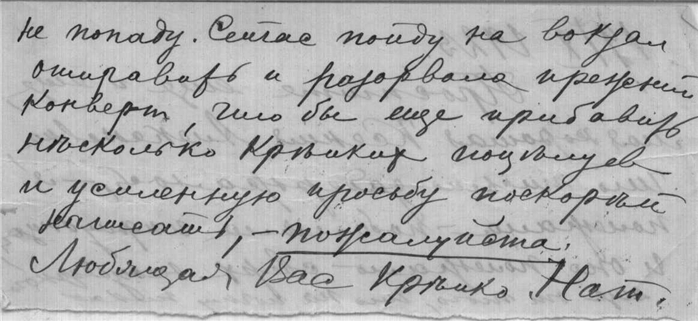 не попаду. Сейчас пойду на вокзал
отправить и разорвала прежний
конверт, что бы еще прибавить
нѣсколько крѣпких поцѣлуев
и усиленную просьбу поскорѣй
написать, – пожалуйста.
Любящая Вас крѣпко Нат.